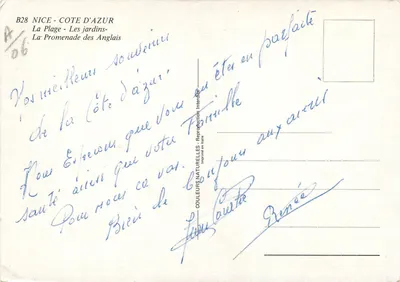 B28 NICE - COTE D'AZUR
La Plage - Les jardins-
La Promenade des Anglais
A/06
Nos meilleurs souvenirs
de la Côte d'azur.
Nous Espérons que vous en êtes en parfaite
santé ainsi que votre Famille
Pour nous ça va.
Bien de bonjours aux amis
Renée
COULEURS NATURELLES - Reproduction interdite